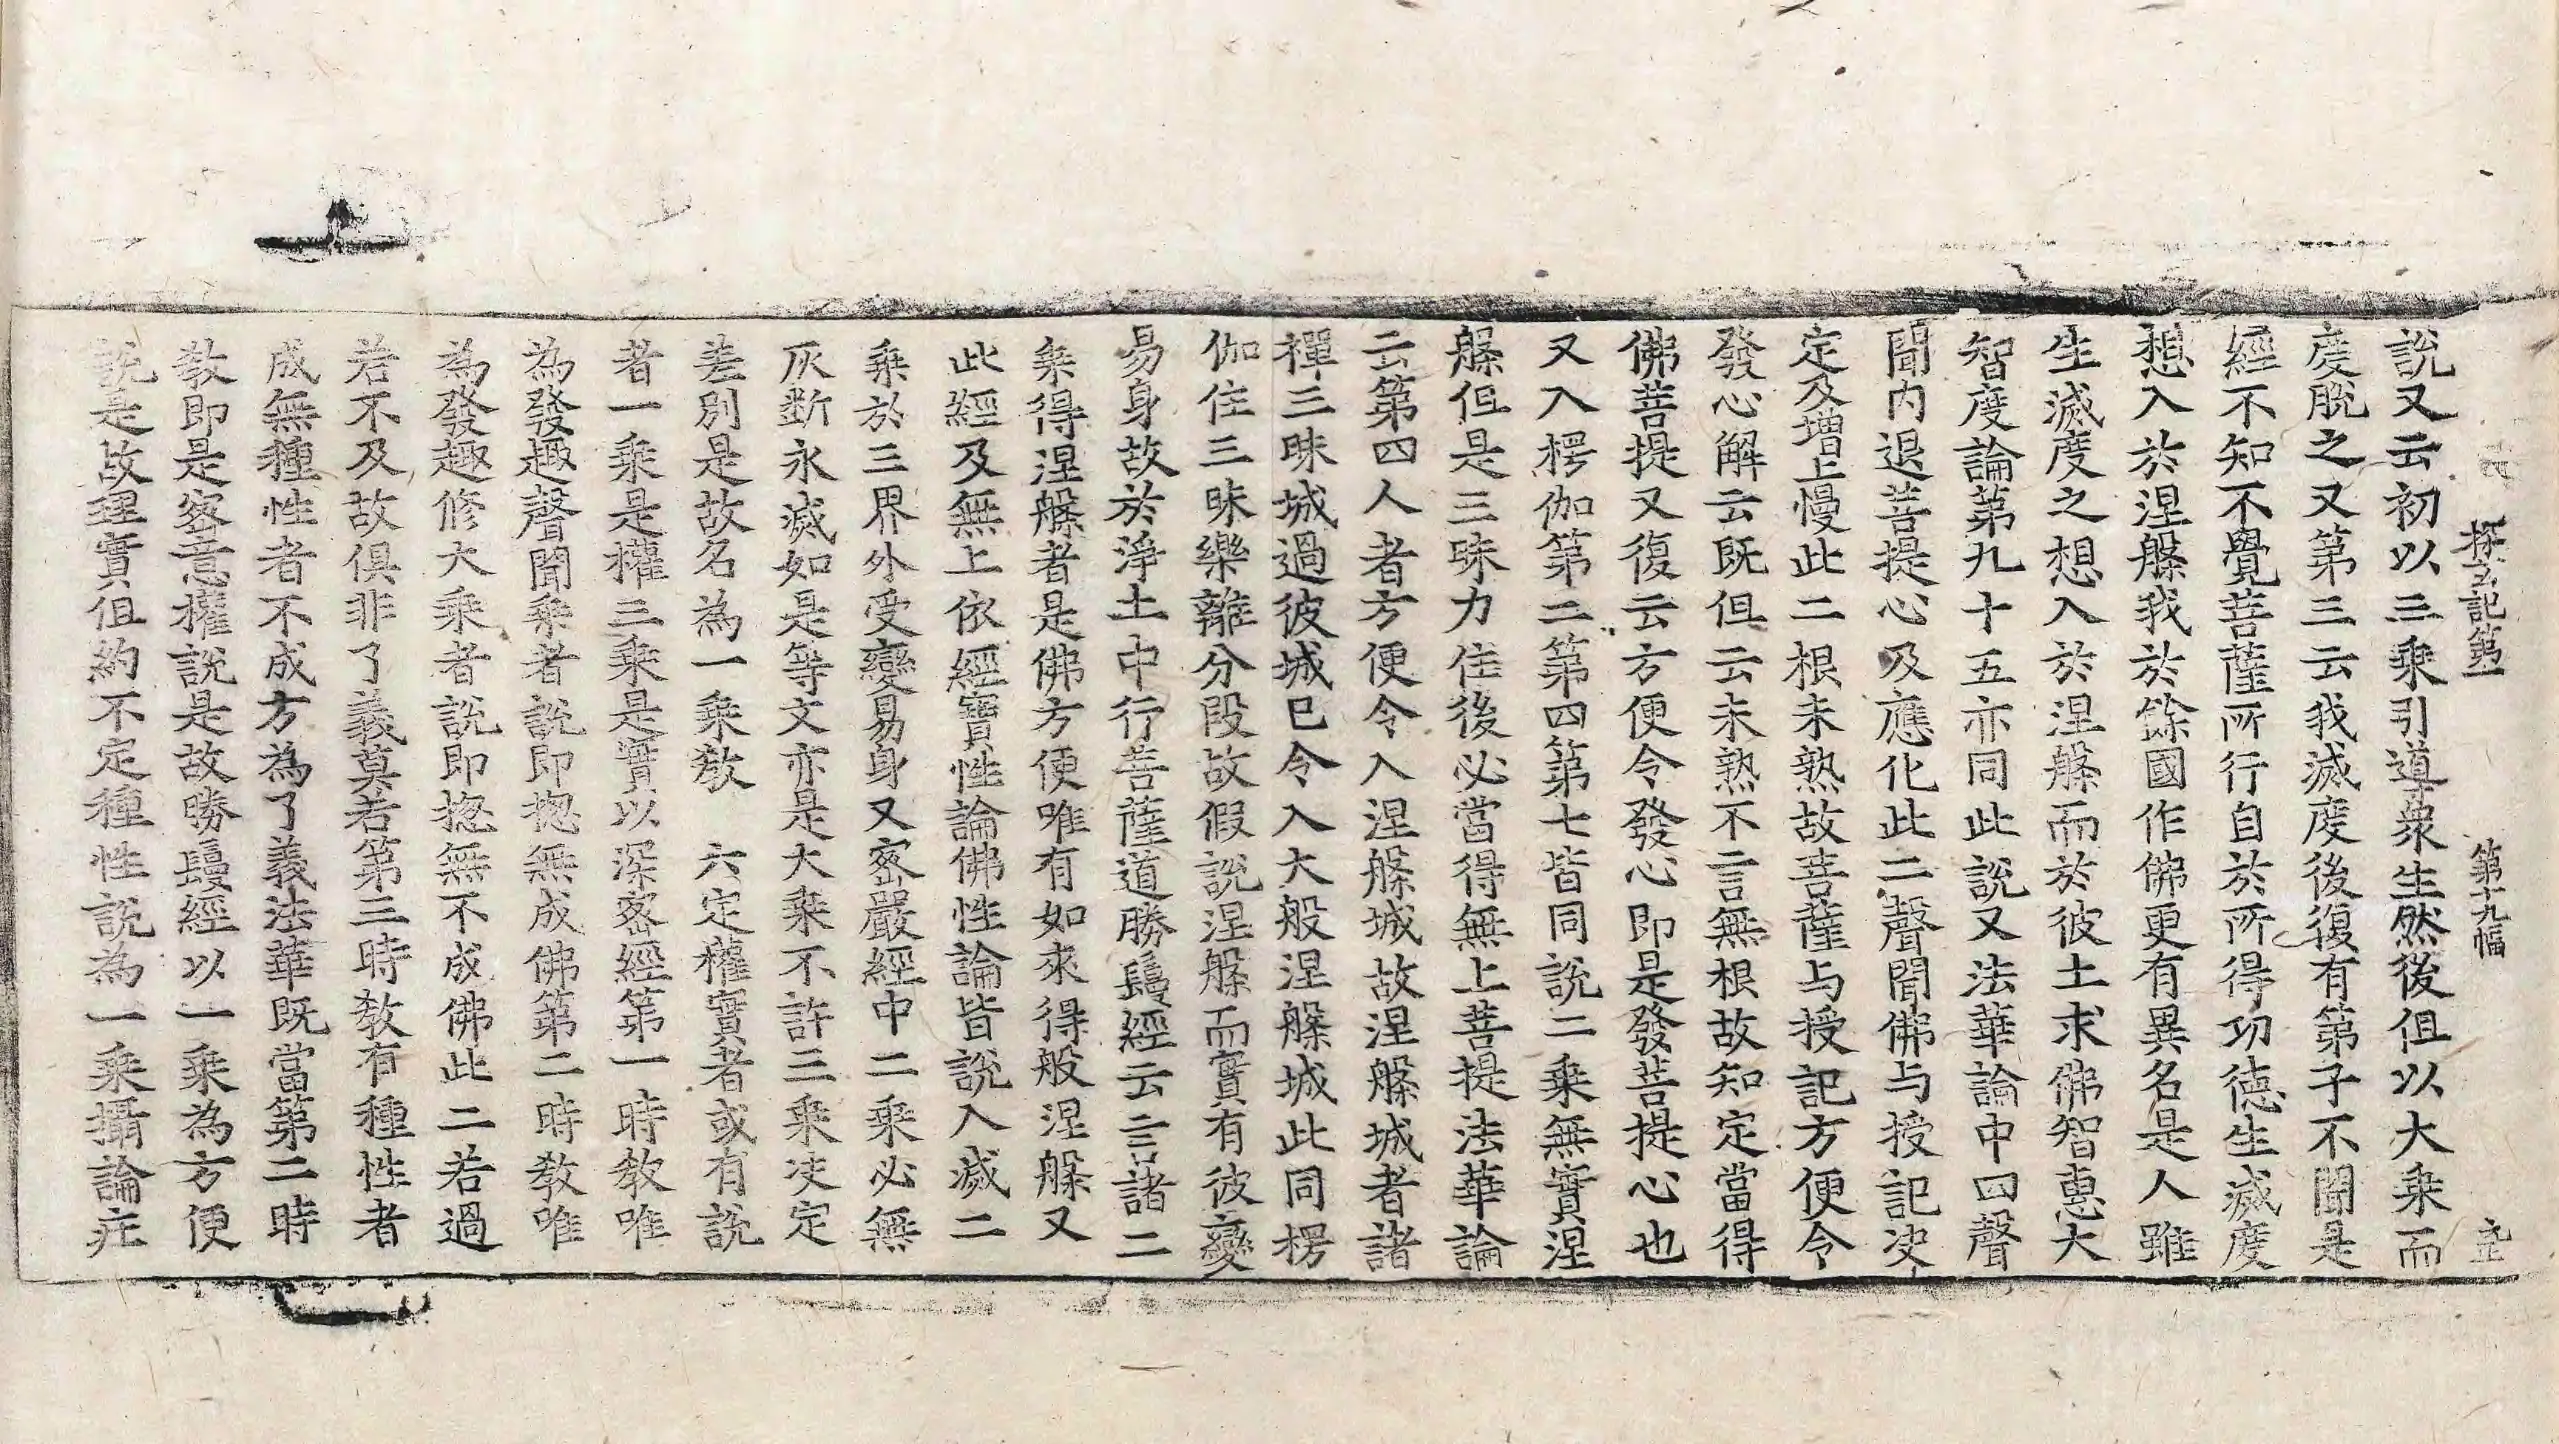 探玄記第一 第十九幅
說又云初以三乘引導衆生然後但以大乘而
度脫之又第三云我滅度後復有第子不聞是
經不知不覺菩薩所行自於所得功德生滅度
想入於涅槃我於餘國作佛更有異名是人雖
生滅度之想入於涅槃而於彼土求佛智惠大
智度論第九十五亦同此說又法華論中四聲
聞內退菩提心及應化此二聲聞佛与授記决
定及增上慢此二根未熟故菩薩与授記方便令
發心解云既但云未熟不言無根故知定當得
佛菩提又復云方便令發心即是發菩提心也
又入楞伽第二第四第七皆同說二乘無實涅
槃但是三昧力住後必當得無上菩提法華論
云第四人者方便令入涅槃城故涅槃城者諸
禪三昧城過彼城已令入大般涅槃城此同楞
伽住三昧樂離分段故假說涅槃而實有彼變
易身故於淨土中行菩薩道勝鬘經云言諸二
乘得涅槃者是佛方便唯有如來得般涅槃又
此經及無上依經寶性論佛性論皆說入滅二
乘於三界外受變易身又密嚴經中二乘必無
灰斷永滅如是等文亦是大乘不許三乘决定
差別是故名為一乘教 六定權實者或有說
者一乘是權三乘是實以深密經第一時教唯
為發趣聲聞乘者說即揔無成佛第二時教唯
為發趣修大乘者說即揔無不成佛此二若過
若不及故俱非了義莫若第三時教有種性者
成無種性者不成方為了義法華既當第二時
教即是密意權說是故勝鬘經以一乘為方便
說是故理實但約不定種性說為一乘攝論疘